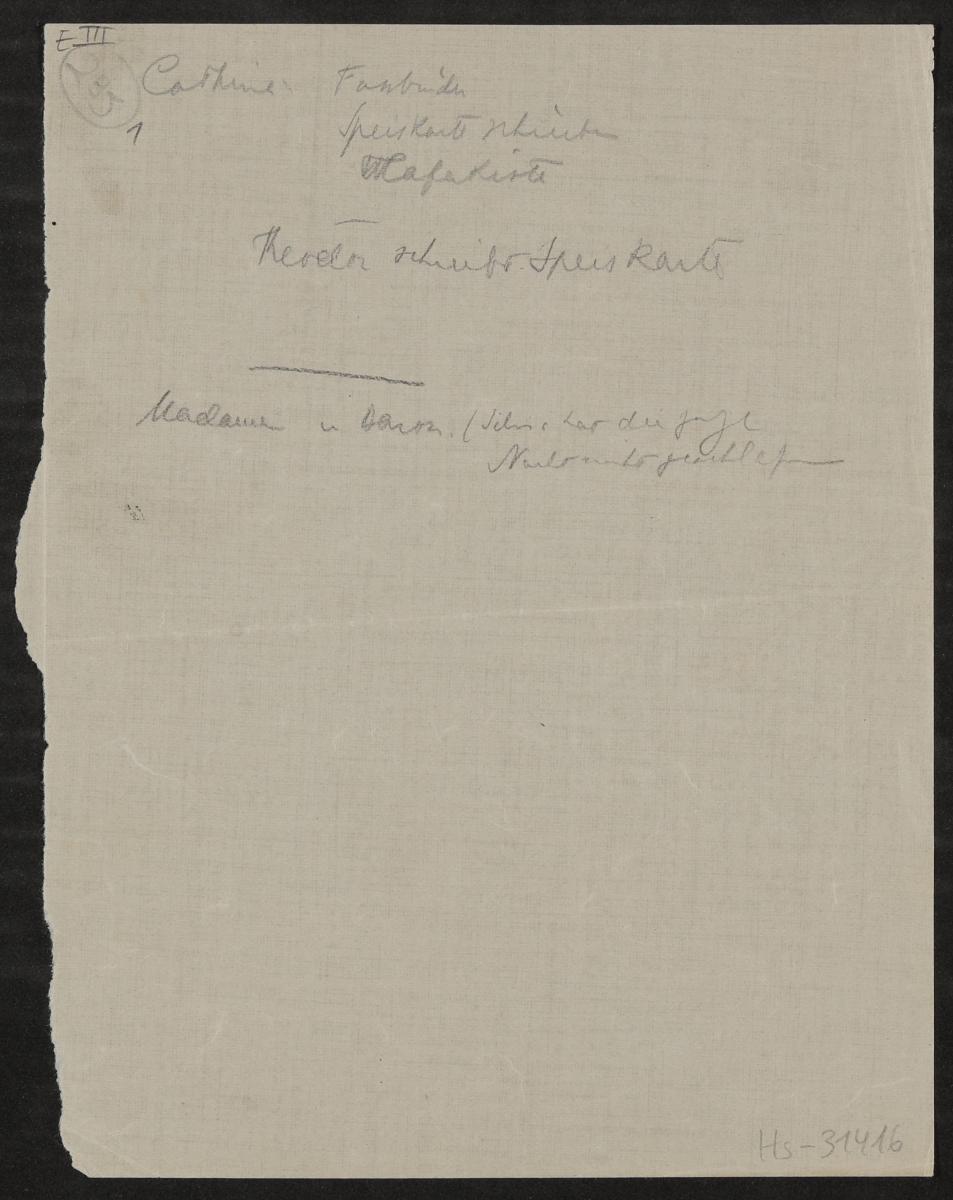 E III
235
1
Cathine: Fassbinder
Speiskarte schreiben
Hafakiste
Theodor schreibt Speiskarte
Madame u Baron. (Silvi: hat die ganze
Nacht nicht geschlafen
Hs-31416